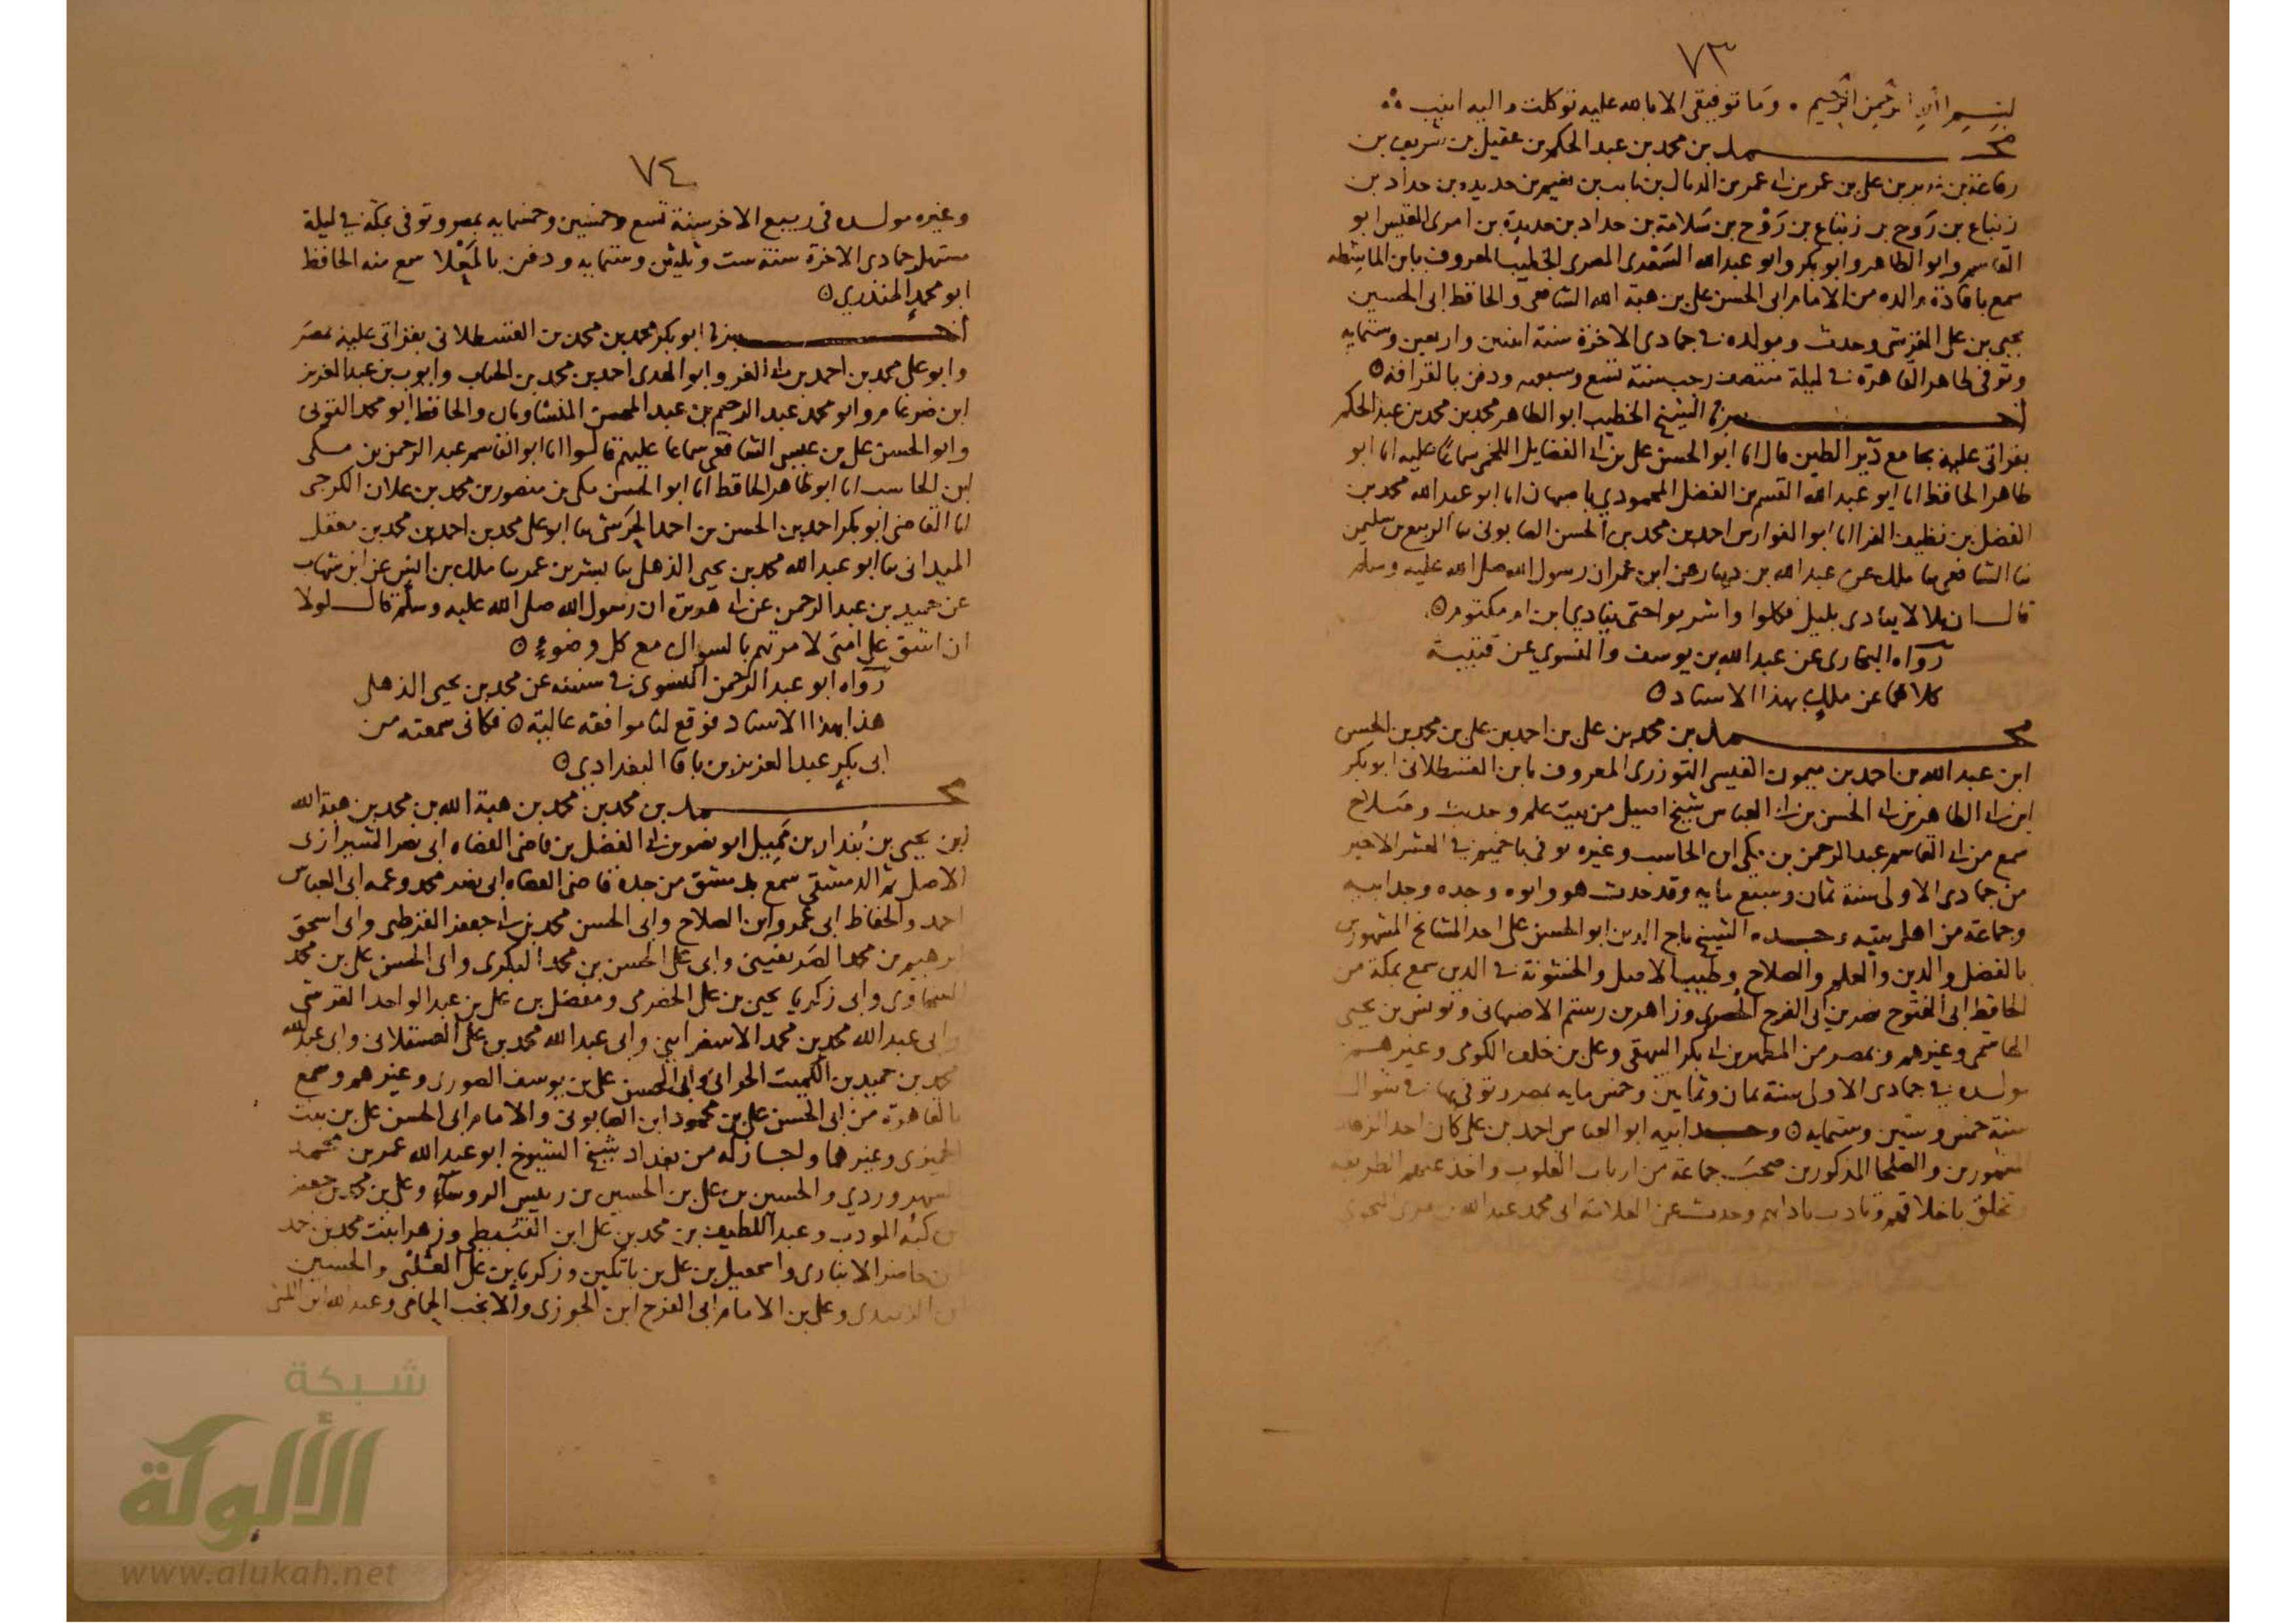 ٧٣
بسم الله الرحمن الرحيم . وما توفيقي الا بالله عليه توكلت واليه انيب
محمد بن محمد بن عبد الحكم بن عقيل بن شريف بن
رفاعة بن غدير بن علي بن عمر بن ابي عمر بن الديال بن ثابت بن نعيم بن حديده بن حداد بن
زنباع بن روح بن زنباع بن روح بن سلامة بن حداد بن حديدة بن امرى القيس ابو
القاسم وابو الطاهر وابو بكر وابو عبد الله السعدى المصرى الخطيب المعروف بابن الماشطه
سمع بافادة والده من الامام ابى الحسن على بن هبة الله الشافعى والحافظ ابى الحسين
يحيى بن على القرشى وحدث ومولده في جمادى الاخرة سنة اثنين واربعين وستمايه
وتوفى بظاهر القاهرة في ليلة منتصف رجب سنة تسع وسبعمه ودفن بالقرافه
اخبرنا الشيخ الخطيب ابو الطاهر محمد بن محمد بن عبد الحكم
بقراتى عليه بجامع دير الطين قال انا ابو الحسن على بن ابي الفضايل اللخمى سماعا عليه انا ابو
طاهر الحافظ انا ابو عبد الله القسم بن الفضل المحمودي باصبهان انا ابو عبد الله محمد بن
الفضل بن نظيف الفرا انا ابو الفوارس احمد بن محمد بن الحسن الصابونى ثنا الربيع بن سليمن
ثنا الشافعى ثنا ملك عن عبد الله بن دينار عن ابن عمر ان رسول الله صلى الله عليه وسلم
قال ان بلالا ينادى بليل فكلوا واشربوا حتى ينادي ابن ام مكتوم
رواه البخارى عن عبد الله بن يوسف والنسوي عن قتيبة
كلاهما عن ملك بهذا الاسناد
محمد بن محمد بن على بن احمد بن على بن محمد بن الحسن
ابن عبد الله بن احمد بن ميمون القيسى التوزرى المعروف بابن القسطلانى ابو بكر
ابن ابي الطاهر بن ابي الحسن بن ابي العباس شيخ اصيل من بيت علم وحديث وصلاح
سمع من ابي القاسم عبد الرحمن بن مكى ابن الحاسب وغيره توفى باخميم في العشر الاخير
من جمادى الاولى سنة ثمان وسبع مايه وقد حدث هو وابوه وجده وجد ابيه
وجماعة من اهل بيته وجده الشيخ تاج الدين ابو الحسن على احد المشايخ المشهورين
بالفضل والدين والعلم والصلاح وطيب الاصل والخشونة في الدين سمع بمكة من
الحافظ ابى الفتوح نصر بن ابى الفرج الحصرى وزاهر بن رستم الاصبهانى ويونس بن يحيى
الهاشمى وغيرهم وبمصر من المطهر بن ابي بكر البيهقى وعلى بن خلف الكومى وغيرهم
مولده في جمادى الاولى سنة ثمان وثمانين وخمس مايه بمصر وتوفى بها في شوال
سنة خمس وستين وستمايه وجد ابيه ابو العباس احمد بن على كان احد الزهاد
المشهورين والصلحا المذكورين صحب جماعة من ارباب القلوب واخذ عنهم الطريقه
وتخلق باخلاقهم وتادب بادابهم وحدث عن العلامة ابى محمد عبد الله بن برى النحوى
٧٤
وغيره مولده فى ربيع الاخر سنة تسع وخمسين وخمسمايه بمصر وتوفى بمكة في ليلة
مستهل جمادى الاخرة سنة ست وثلثين وستمايه ودفن بالمعلا سمع منه الحافظ
ابو محمد المنذري
اخبرنا ابو بكر محمد بن محمد بن القسطلانى بقراتى عليه بمصر
وابو على محمد بن احمد بن ابي الفر وابو الهدى احمد بن محمد بن الجباب وايوب بن عبد العزيز
ابن ضرغام وابو محمد عبد الرحيم بن عبد المحسن المنشاويان والحافظ ابو محمد التونى
وابو الحسن على بن عيسى الشافعى سماعا عليهم قالوا انا ابو القاسم عبد الرحمن بن مكى
ابن الحاسب انا ابو طاهر الحافظ انا ابو الحسن مكى بن منصور بن محمد بن علان الكرجى
انا القاضى ابو بكر احمد بن الحسن بن احمد الحرشى ثنا ابو على محمد بن احمد بن محمد بن معقل
الميدانى ثنا ابو عبد الله محمد بن يحيى الذهلى ثنا بشر بن عمر ثنا ملك بن انس عن ابن شهاب
عن حميد بن عبد الرحمن عن ابي هريرة ان رسول الله صلى الله عليه وسلم قال لولا
ان اشق على امتى لامرتهم بالسواك مع كل وضوء
رواه ابو عبد الرحمن النسوى في سننه عن محمد بن يحيى الذهلى
هذا بهذا الاسناد فوقع لنا موافقه عالية فكانى سمعته من
ابى بكر عبد العزيز بن باقا البغدادي
محمد بن محمد بن محمد بن هبة الله بن محمد بن هبة الله
ابن يحيى بن بندار بن مميل ابو نصر بن ابي الفضل بن قاضى القضاه ابى نصر الشيرازى
الاصل ثم الدمشقى سمع بدمشق من جده قاضى القضاه ابى نصر محمد وعمه ابى العباس
احمد والحفاظ ابى عمرو ابن الصلاح وابى الحسن محمد بن ابي جعفر القرطبى وابى اسحق
ابرهيم بن محمد الصريفينى وابى على الحسن بن محمد البكرى وابى الحسن على بن محمد
السخاوى وابى زكريا يحيى بن على الحضرمى ومفضل بن على بن عبد الواحد القرشى
وابى عبد الله محمد بن محمد الاسفراينى وابى عبد الله محمد بن على العسقلانى وابى عبد الله
محمد بن حميد بن الكميت الحرانى وابى الحسن على بن يوسف الصورى وغيرهم وسمع
بالقاهرة من ابى الحسن على بن محمود ابن الصابونى والامام ابى الحسن على بن بنت
الجميزى وغيرهما واجاز له من بغداد شيخ الشيوخ ابو عبد الله عمر بن محمد
السهروردي والحسين بن على بن الحسين بن رييس الروساء وعلى بن محمد بن جعفر
بن كبه المودب وعبد اللطيف بن محمد بن على ابن القبيطى وزهرا بنت محمد بن احمد
بن حاضر الانبارى واسمعيل بن على بن باتكين وزكريا بن على العلبى والحسين
ابن الزبيدى وعلى بن الامام ابى الفرج ابن الجوزى والانجب الحمامى وعبد الله ابن اللتى
شبكة
الألوكة
www.alukah.net